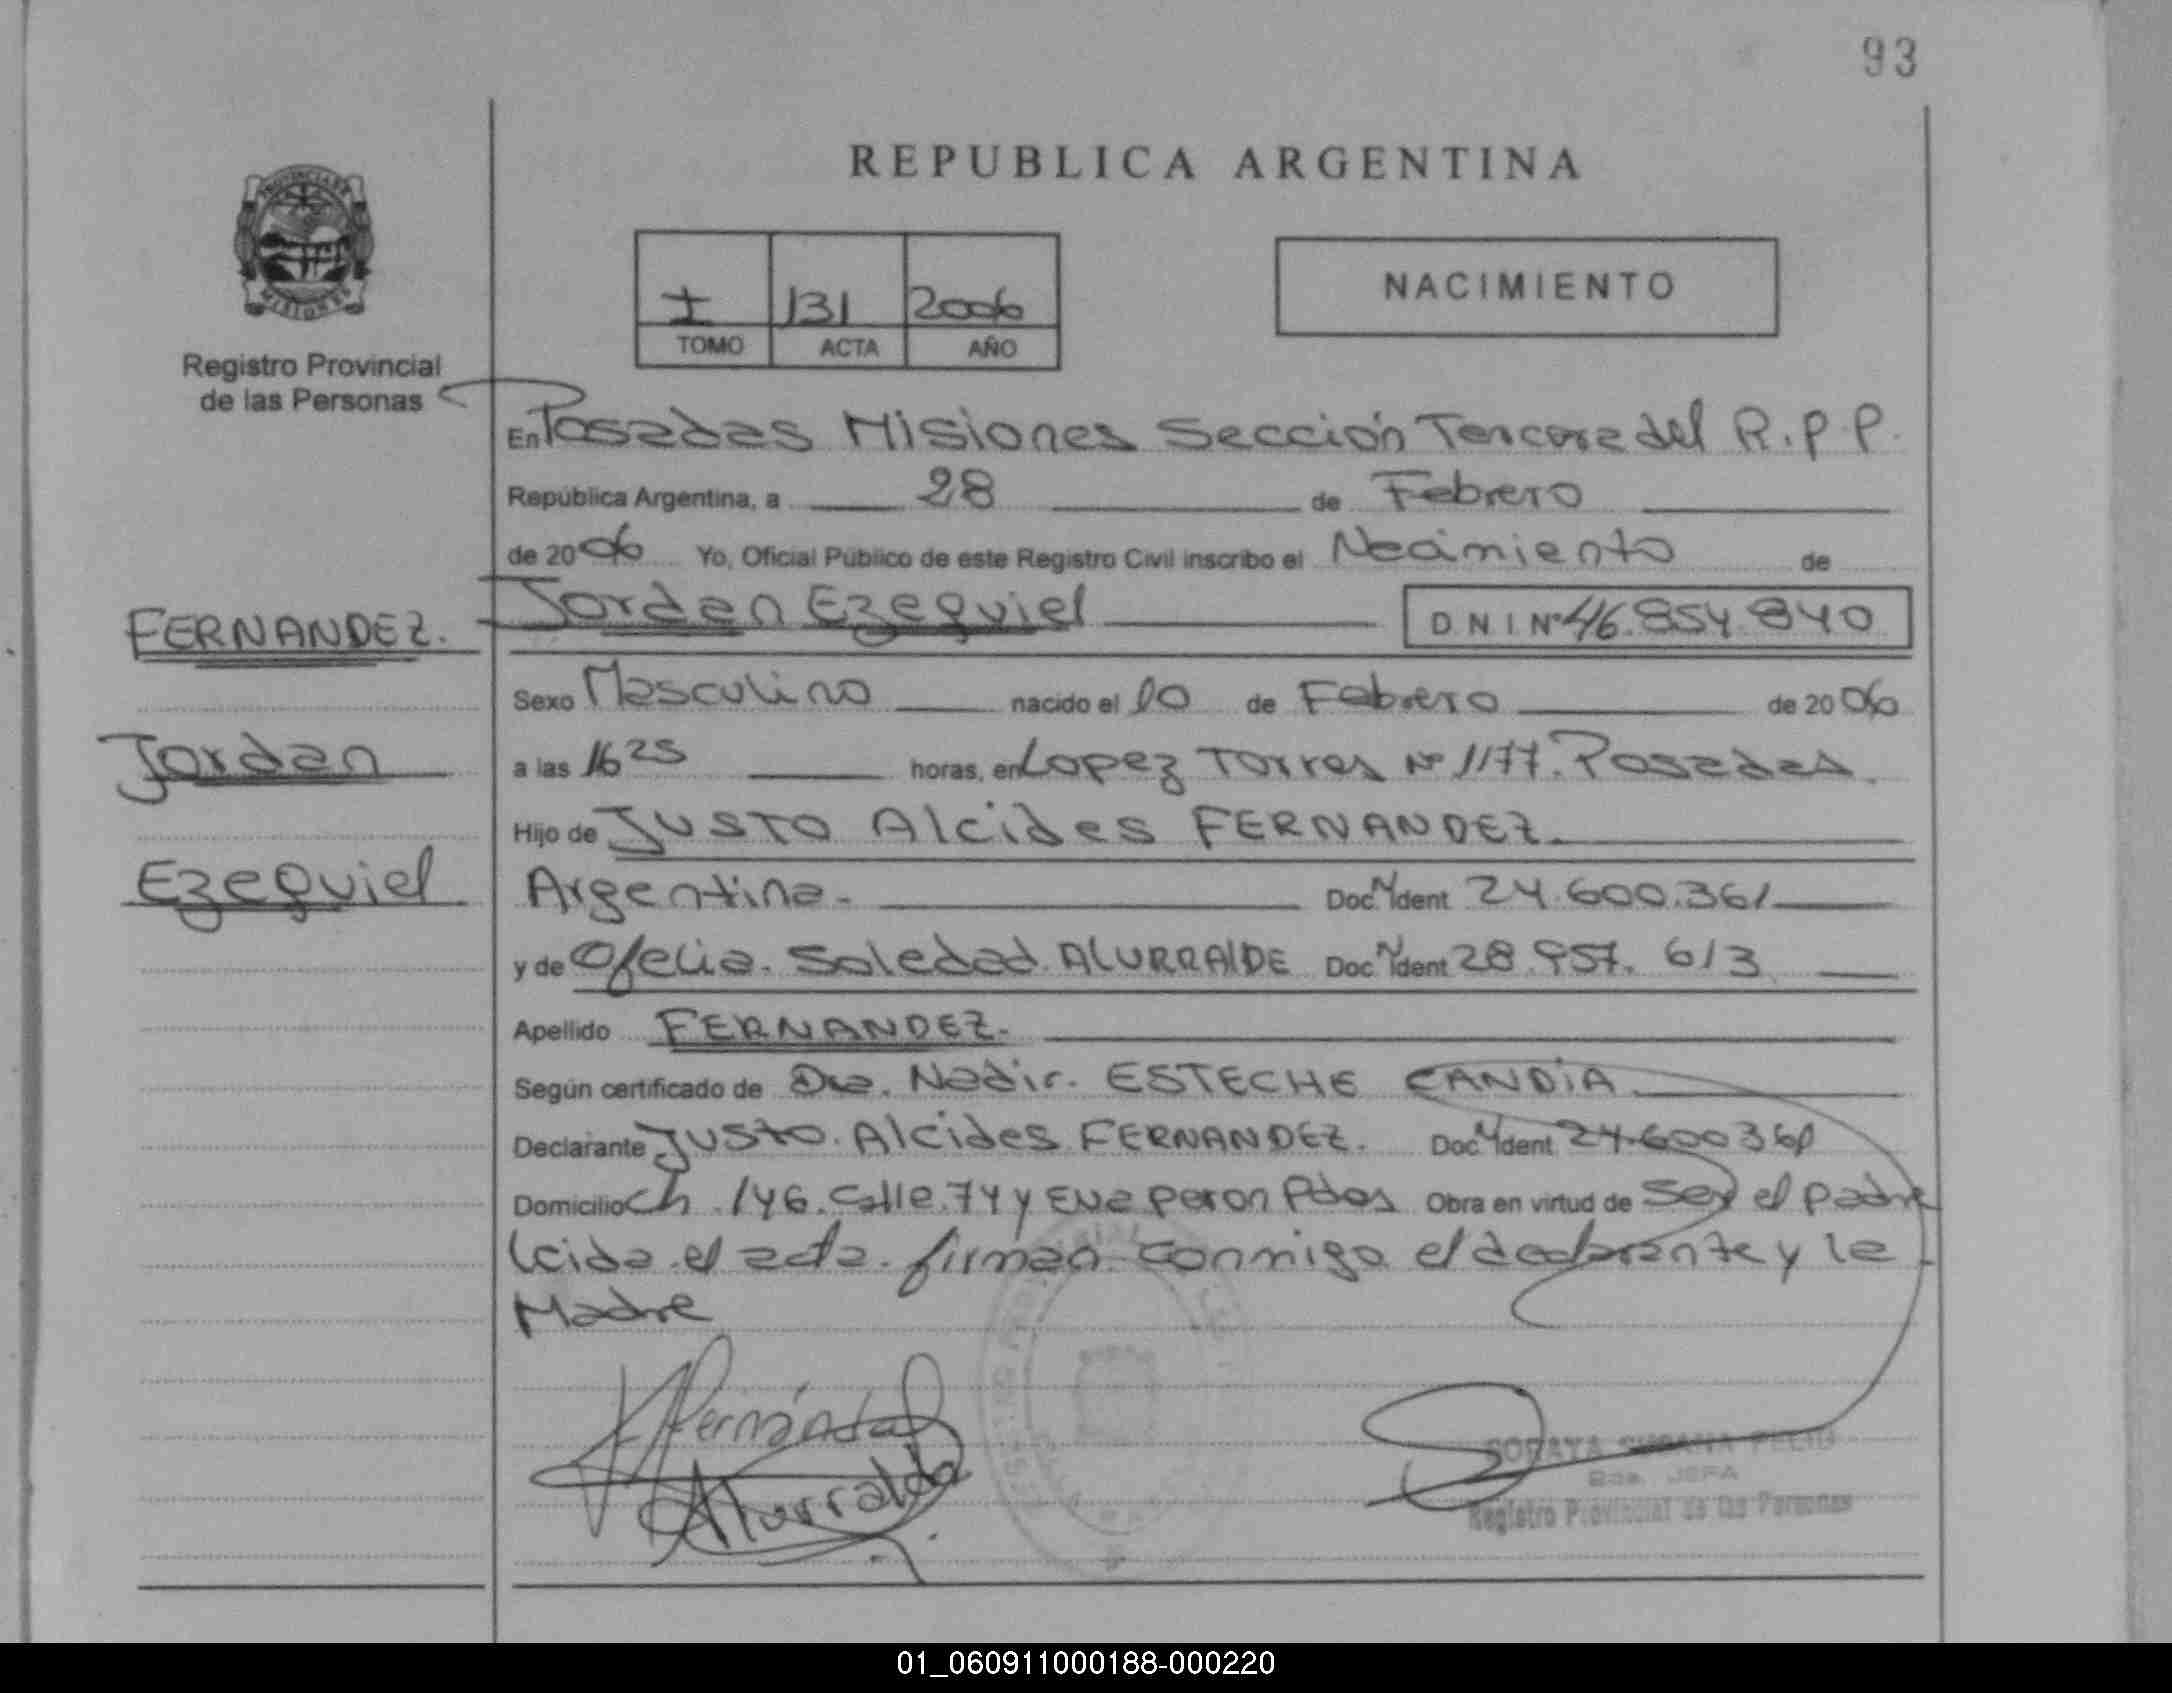 93
REPUBLICA ARGENTINA
I 131 2006
TOMO ACTA AÑO
NACIMIENTO
PROVINCIA DE
MISIONES
Registro Provincial
de las Personas
En Posadas Misiones Sección Tercera del R.P.P.
República Argentina, a 28 de Febrero
de 2006 Yo, Oficial Público de este Registro Civil inscribo el Nacimiento de
Jordan Ezequiel DNI Nº 46.854.840
FERNANDEZ.
Jordan
Ezequiel
Sexo Masculino nacido el 10 de Febrero de 2006
a las 16 25 horas, en Lopez Torres Nº 1177. Posadas.
Hijo de Justo Alcides FERNANDEZ.
Argentina. Doc. N Ident 24.600.361
y de Ofelia. Soledad ALURRALDE Doc. N Ident 28.957.613
Apellido FERNANDEZ.
Según certificado de Dra. Nadir. ESTECHE CANDIA
Declarante Justo. Alcides FERNANDEZ. Doc. N Ident 24.600361
Domicilio Ch. 146. Calle. 74 y Eva peron Pdas Obra en virtud de Ser el padre
leida el acta. firman conmigo el declarante y la
Madre
Fernández
Alurralde
SORAYA SUSANA
JEFA
Registro Provincial de las Personas
01_060911000188-000220